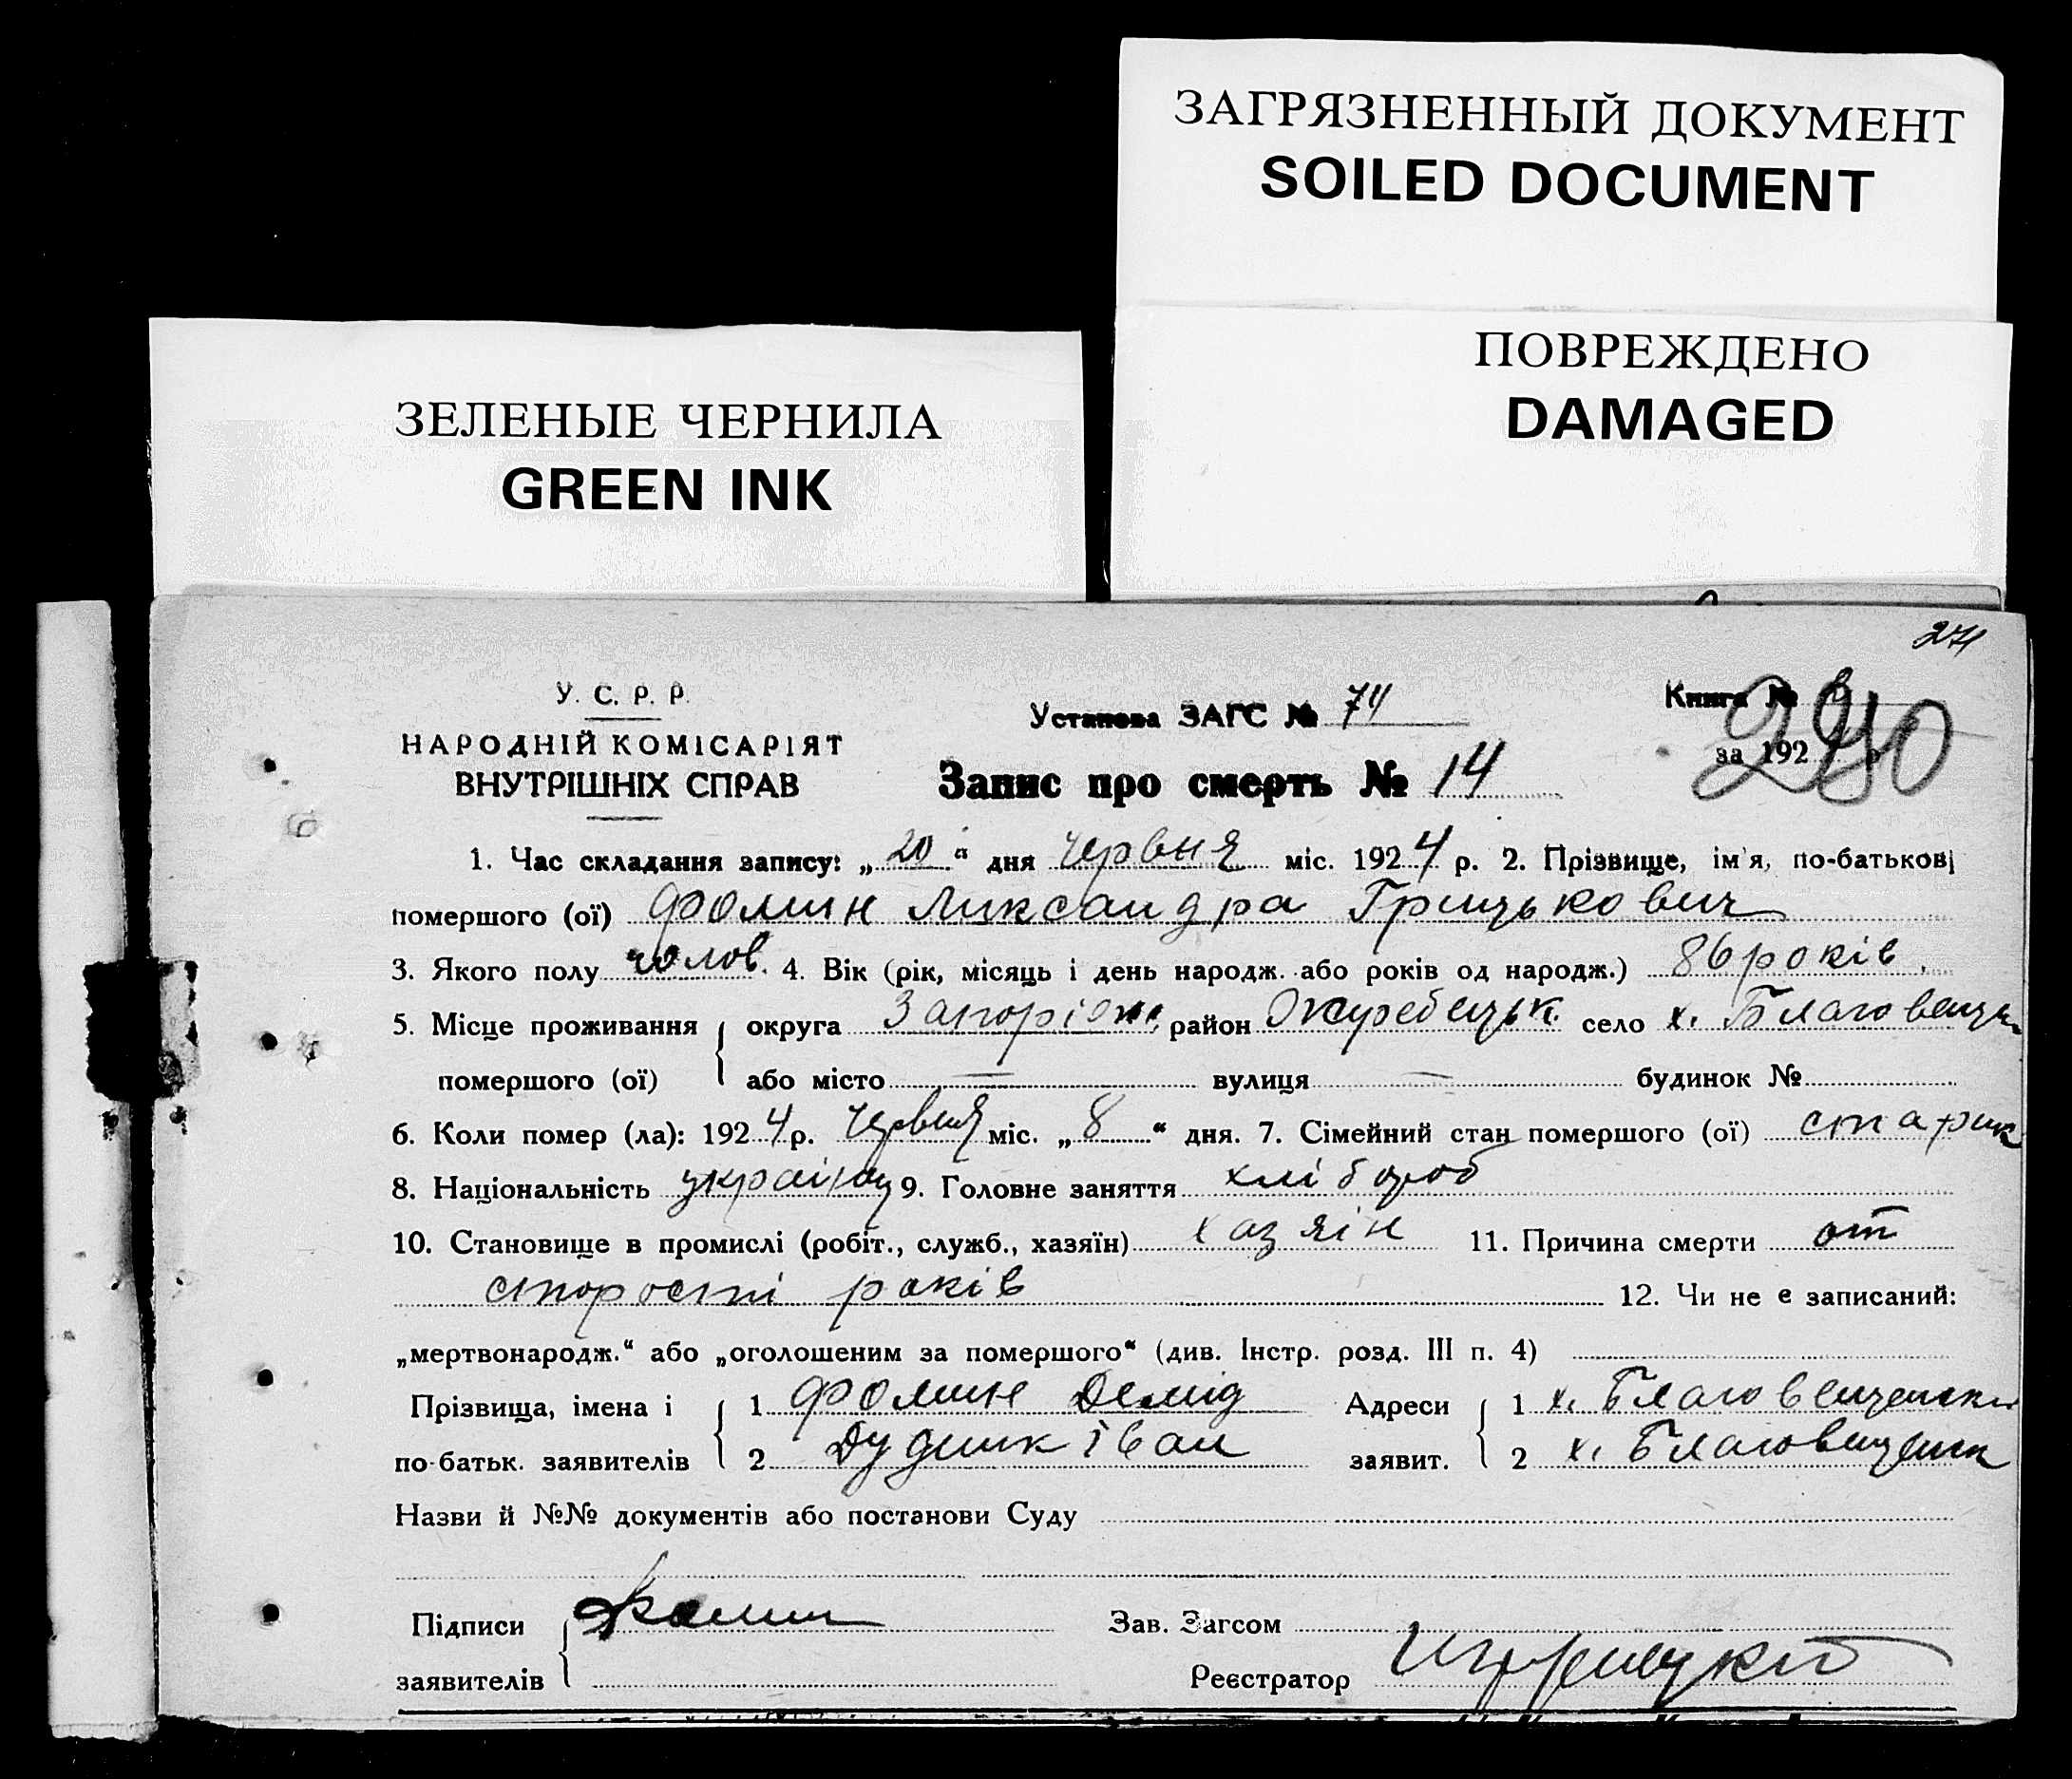 ЗАГРЯЗНЕННЫЙ ДОКУМЕНТ
SOILED DOCUMENT
ПОВРЕЖДЕНО
DAMAGED
ЗЕЛЕНЫЕ ЧЕРНИЛА
GREEN INK
271
У. С. Р. Р.
НАРОДНІЙ КОМІСАРІЯТ
ВНУТРІШНІХ СПРАВ
Установа ЗАГС № 74
Запис про смерть № 14
Книга №
за 192
290
1. Час складання запису: „20“ дня червня міс. 1924 р. 2. Прізвище, ім'я, по-батькові
помершого (ої) Фомин Ликсандра Грицькович
3. Якого полу чолов. 4. Вік (рік, місяць і день народж. або років од народж.) 86 років
5. Місце проживання округа Запоріж. район Жеребецьк. село х. Благовещен
помершого (ої) або місто — вулиця — будинок №
6. Коли помер (ла): 1924 р. червня міс. „8“ дня. 7. Сімейний стан помершого (ої) старик
8. Національність украінец 9. Головне заняття хлібороб
10. Становище в промислі (робіт., служб., хазяїн) хазяін 11. Причина смерти от
старости років 12. Чи не є записаний:
„мертвонародж.“ або „оголошеним за помершого“ (див. Інстр. розд. III п. 4)
Прізвища, імена і 1 Фомин Демід Адреси 1 х. Благовещенськ
по-батьк. заявителів 2 Дудник Іван заявит. 2 х. Благовещенськ
Назви й №№ документів або постанови Суду
Підписи Фомин Зав. Загсом
заявителів Реєстратор